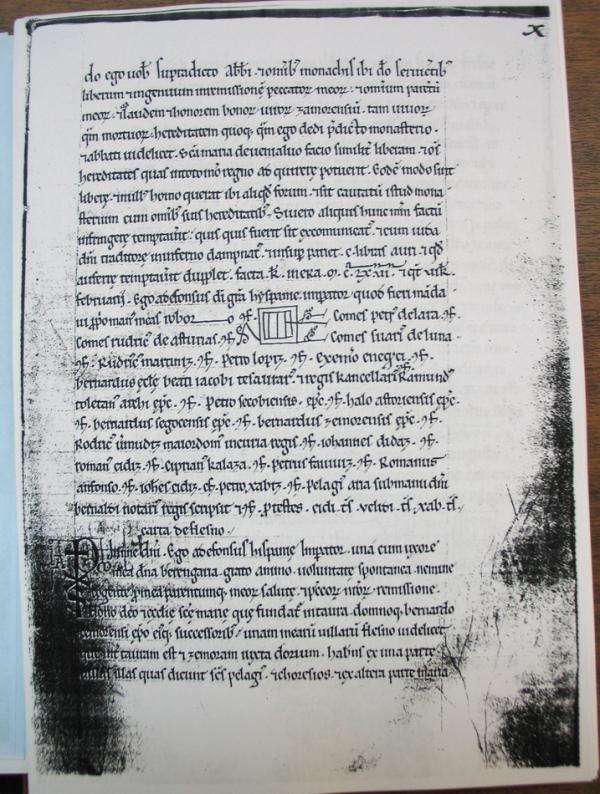 x
do ego vob supradicto abbi ⁊omib monachis ibi do seruietib
liberum ⁊ingenuum inremissione peccator meor ⁊omium paretu
meor ⁊laudem ⁊honorem bonor uiror zamorensiu tam uiuor
qm mortuor hereditatem quoq qm ego dedi pdicto monasterio
⁊abbati uidelicet sca maria deuenialuo facio similit liberam ⁊os
hereditates quas inisto mo regno ab quirere potuerit Eode modo sint
libere ⁊nulls homo querat ibi aliqd forum ⁊sit cautatu istud mona
sterium cum omib suis hereditatib Siuero aliquis hunc mm factu
infringere temptauit quis quis fuerit sit excomunicat ⁊cum iuda
dni traditore ininferno dampnat ⁊insup pariet c libras auri ⁊qd
auferre temptauit duplet facta k inera
februarii Ego adefonsus di gra hyspanie impator quod fieri manda
ui ppo manu meas robor Comes petr delara cf
comes rudric de asturias cf Comes suari deluna
cf Rudric martiniz cf Petro lopiz cf exemio
bernardus ecle beati iacobi tesaurar ⁊regis kancellari Raimund
toletan archi epc cf Petro secobiensis epc cf halo astoriensis epc
cf bernardus segocensis epc cf bernardus zemorensis epc cf
Rodric uimudiz maiordom incuria regis cf iohannes didaz cf
roman cidiz cf ciprian kalaza cf petrus cf Romanus
anfonso cf iohes cidiz cf petro xabiz cf pelagi aria submanu dni
bernaldi notarii regis scripsit ⁊cf p testes cidi ts ueliti ts xab ts
carta de flesno
Ego adefonsus hispanie Imperator una cum uxore
mea dna berengaria grato animo uoluntate spontanea nemine
cogente p mea parentumq meor salute ⁊peccor nror remissione
dono deo ⁊ecclie sce marie que fundat domnoq bernardo
zemorensi epo eisq successorib unam meam uillam flesno uidelicet
que taurum est ⁊ zemoram iuxta dorium habens ex una parte
uillas illas quas dicunt scs pelagi ⁊choresios ⁊ex altera parte